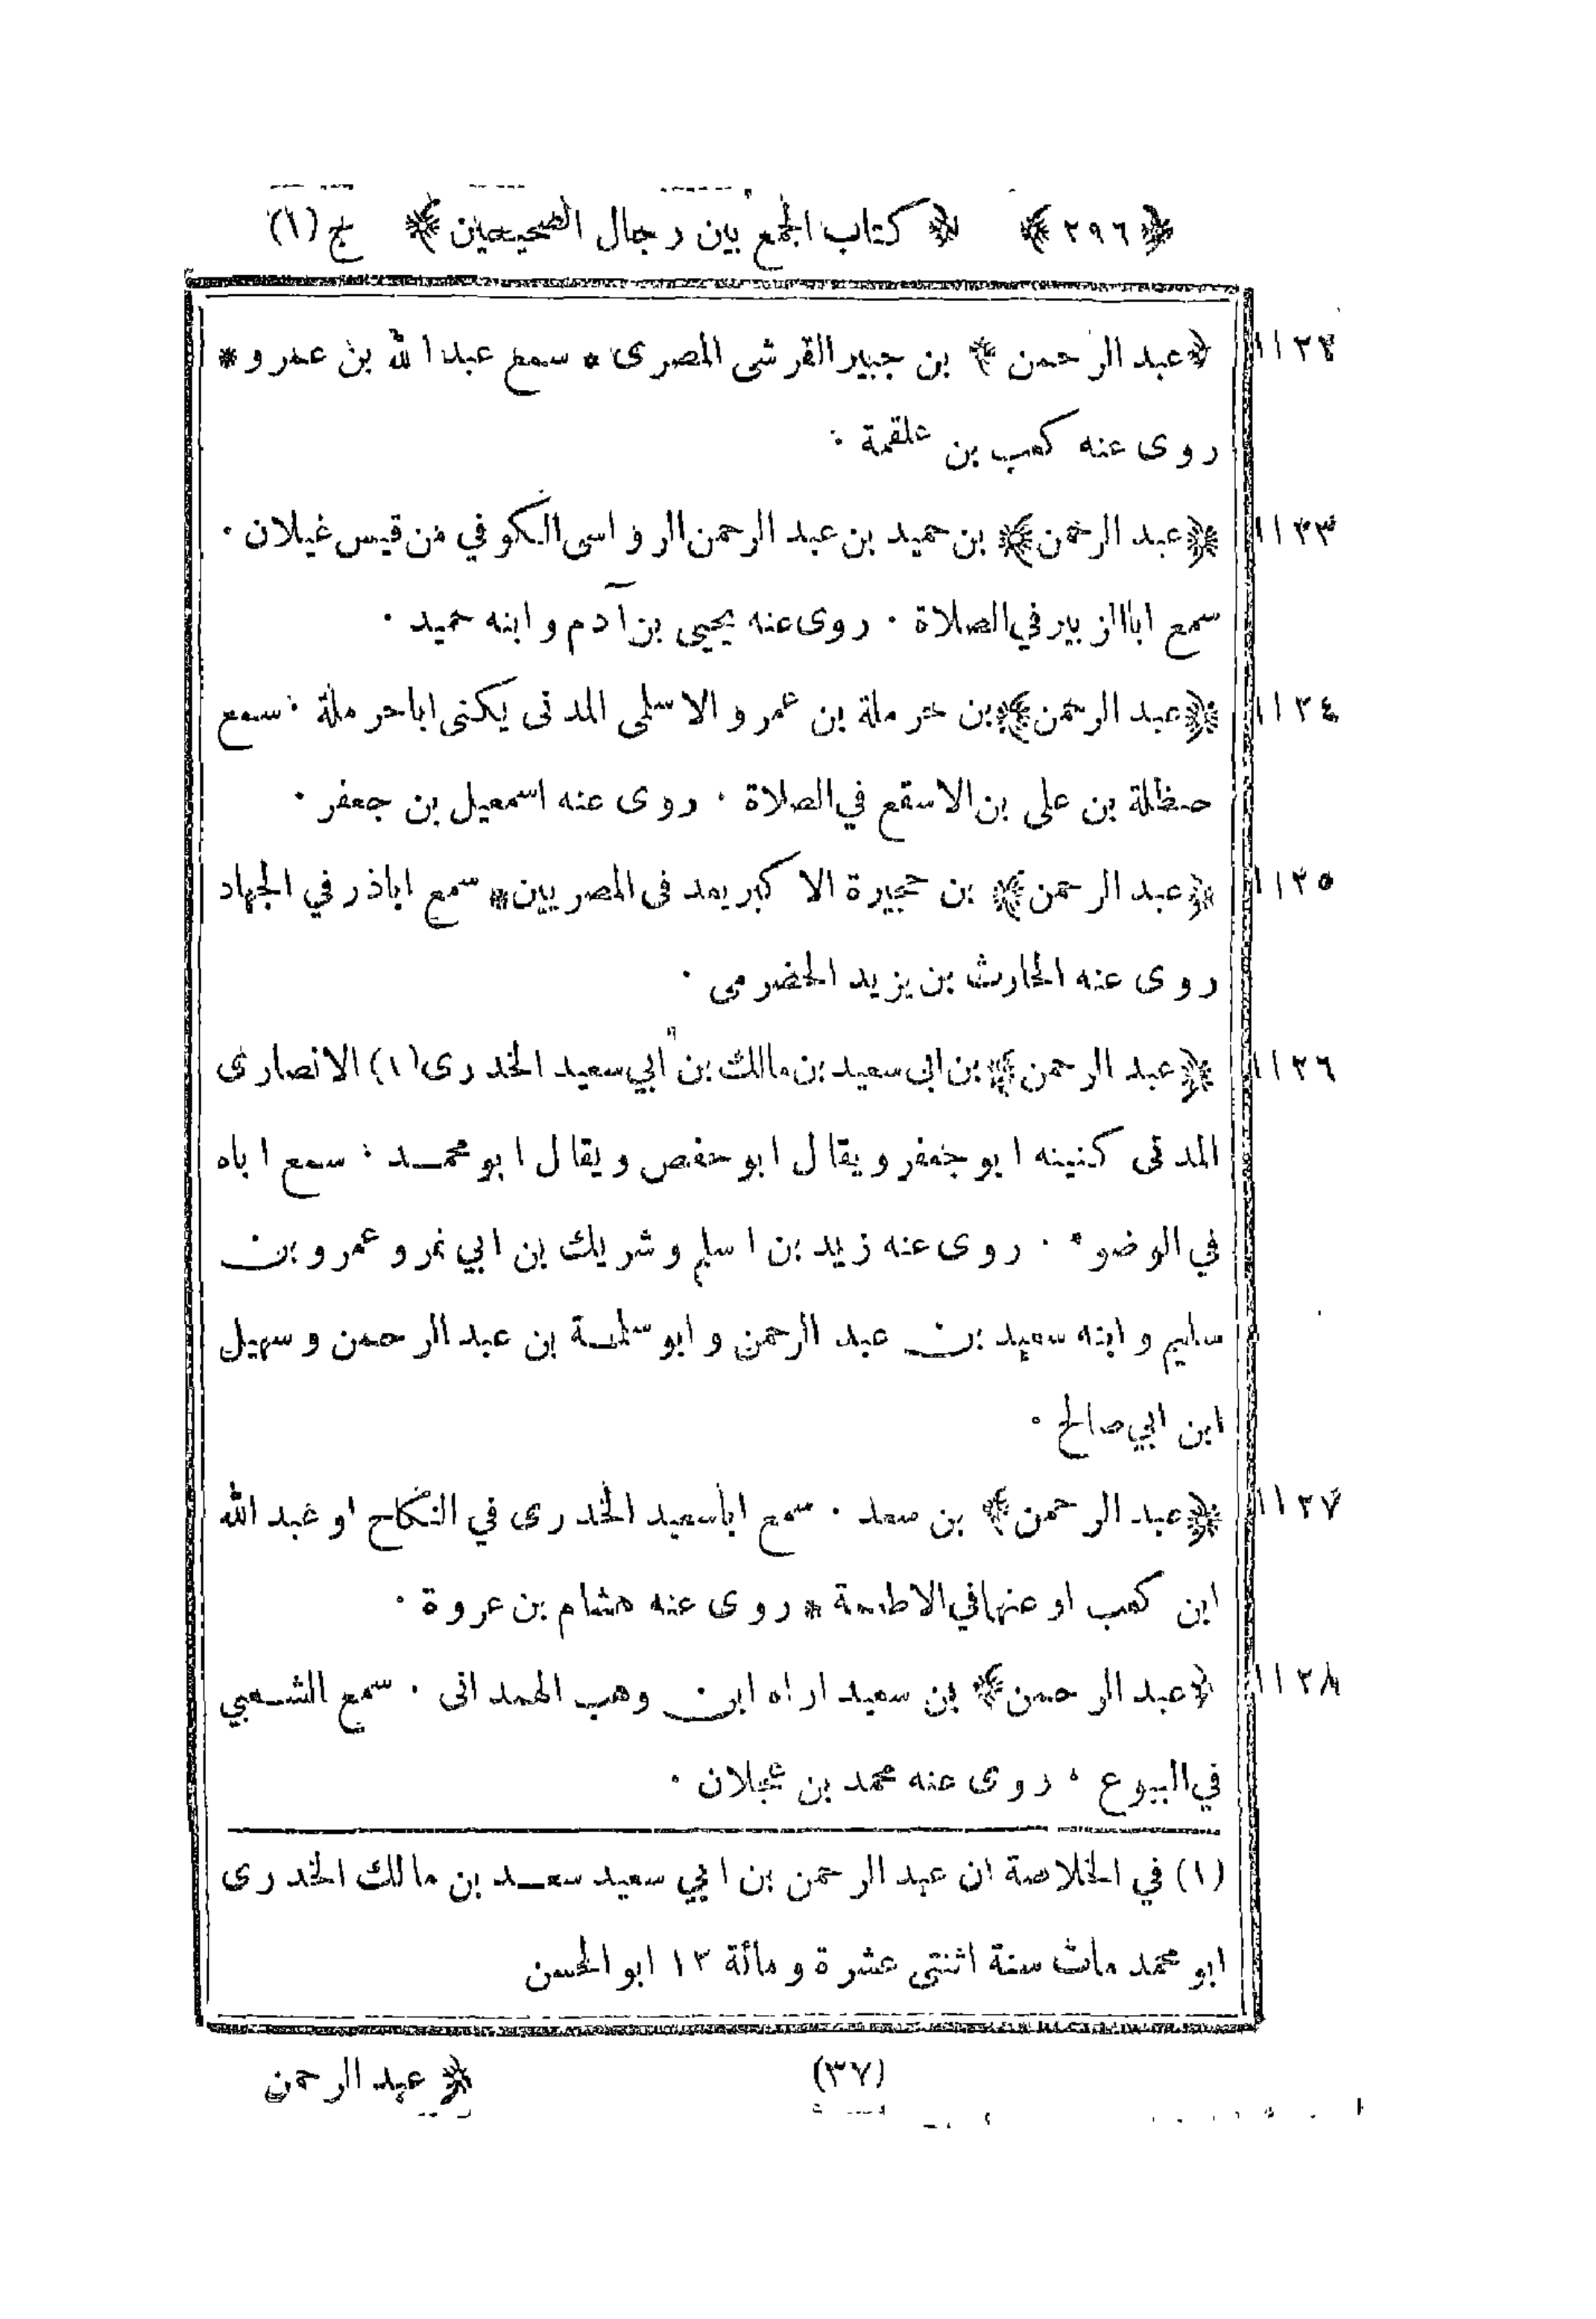 ﴿ ٢٩٦ ﴾ ﴿ كتاب الجمع بين رجال الصحيحين ﴾ ج (١)
١١٢٢ ﴿ عبد الرحمن ﴾ بن جبير القرشى المصرى * سمع عبد الله بن عمرو *
روى عنه كعب بن علقمة ٠
١١٢٣ ﴿ عبد الرحمن ﴾ بن حميد بن عبد الرحمن الرواسى الكوفي من قيس غيلان ٠
سمع ابا الزبير في الصلاة ٠ روى عنه يحيى بن آدم و ابنه حميد ٠
١١٢٤ ﴿ عبد الرحمن ﴾ بن حرملة بن عمرو الاسلمى المدنى يكنى اباحرملة ٠ سمع
حنظلة بن على بن الاسقع في الصلاة ٠ روى عنه اسمعيل بن جعفر ٠
١١٢٥ ﴿ عبد الرحمن ﴾ بن حجيرة الاكبر يعد فى المصريين * سمع اباذر في الجهاد
روى عنه الحارث بن يزيد الحضرمى ٠
١١٢٦ ﴿ عبد الرحمن ﴾ بن ابى سعيد بن مالك بن ابي سعيد الخدرى (١) الانصارى
المدنى كنيته ابو جعفر و يقال ابو حفص و يقال ابو محمد ٠ سمع اباه
في الوضوء ٠ روى عنه زيد بن اسلم و شريك بن ابي نمر و عمرو بن
سليم و ابنه سعيد بن عبد الرحمن و ابو سلمة بن عبد الرحمن و سهيل
ابن ابي صالح ٠
١١٢٧ ﴿ عبد الرحمن ﴾ بن سعد ٠ سمع اباسعيد الخدرى في النكاح او عبد الله
ابن كعب او عنهما في الاطعمة * روى عنه هشام بن عروة ٠
١١٢٨ ﴿ عبد الرحمن ﴾ بن سعيد اراه ابن وهب الهمدانى ٠ سمع الشعبي
في البيوع ٠ روى عنه محمد بن عجلان ٠
(١) في الخلاصة ان عبد الرحمن بن ابي سعيد سعد بن مالك الخدرى
ابو محمد مات سنة اثنتى عشرة و مائة ١٢ ابو الحسن
(٣٧) ﴿ عبد الرحمن